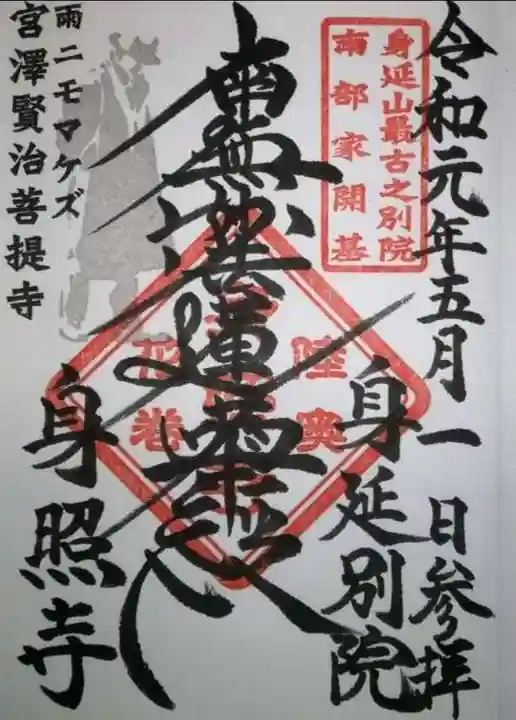 令和元年五月一日参拝
身延山最古之別院
南部家開基
身延別院
南無妙法蓮華経
陸奥
花巻
雨ニモマケズ
宮澤賢治菩提寺
身照寺